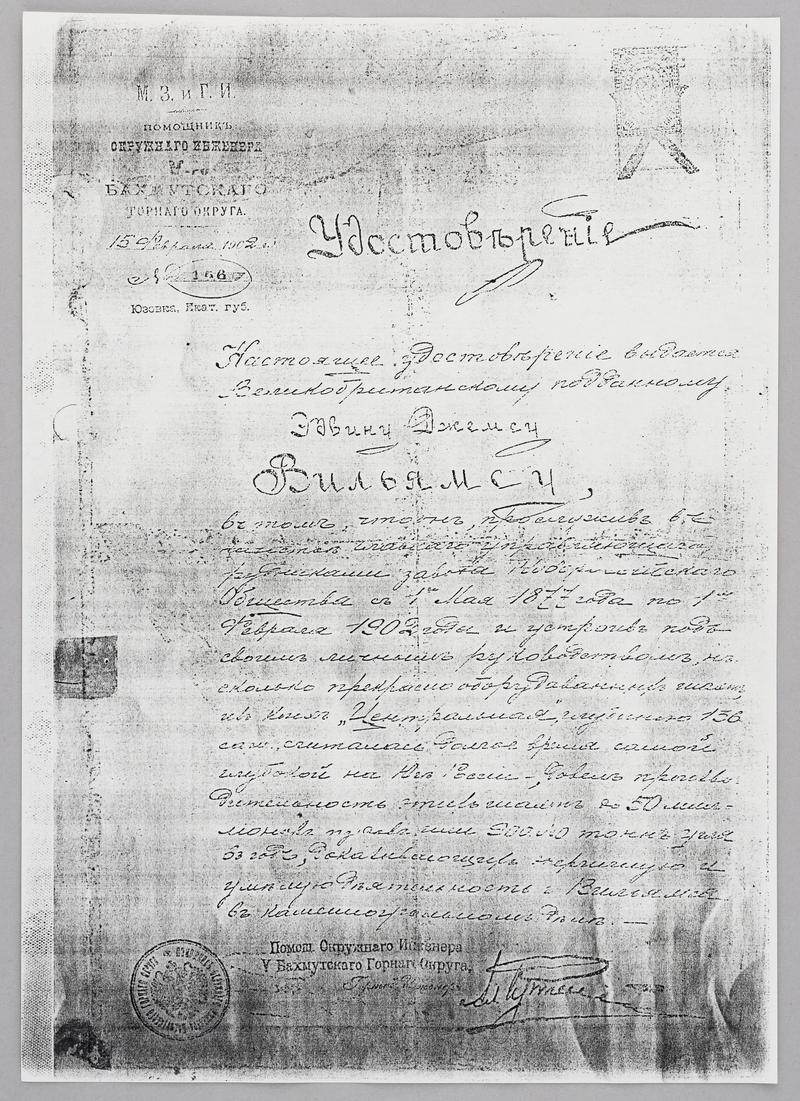 М. З. и Г. И.
ПОМОЩНИКЪ
ОКРУЖНАГО ИНЖЕНЕРА
V-го
БАХМУТСКАГО
ГОРНАГО ОКРУГА.
15 Февраля 1902 г.
№ 166
Юзовка, Екат. губ.
Удостовѣреніе
Настоящее удостовѣреніе выдается
Великобританскому подданному
Эдвину Джемсу
Вильямсу,
въ томъ, что онъ, прослуживъ въ
главнаго управляющаго
рудниками завода Новороссійскаго
Общества съ 1го Мая 1877 года по 1ое
Февраля 1902 года и устроивъ подъ
своимъ личнымъ руководствомъ, нѣ-
сколько прекрасно оборудованныхъ шахтъ,
изъ коихъ „Центральная“, глубиною 156
саж., считалась долгое время самой
глубокой на Югѣ Россіи, довелъ произво-
дительность этихъ шахтъ до 50 мил-
ліоновъ пудовъ или тоннъ угля
въ годъ, доказывающихъ энергичную и
умѣлую дѣятельность г. Вильямса
въ каменноугольномъ дѣлѣ. —
Помощ. Окружнаго Инженера
V Бахмутскаго Горнаго Округа,
Горный Инженеръ